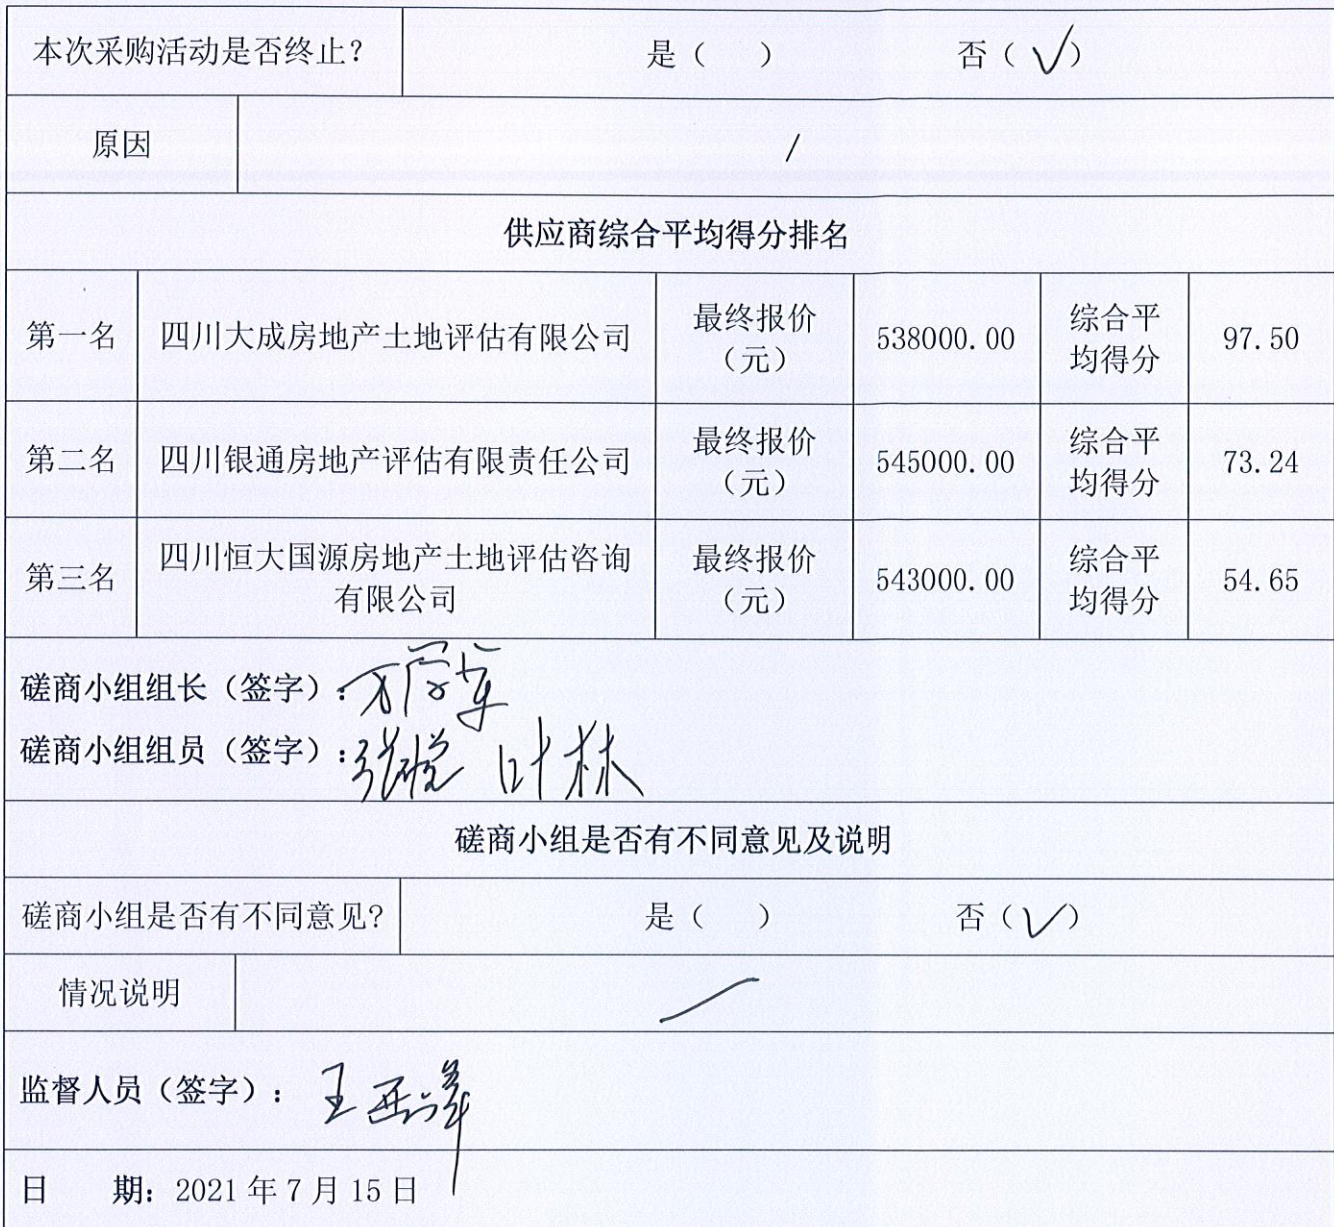 本次采购活动是否终止？ 是（ ） 否（√）
原因 /
供应商综合平均得分排名
第一名 四川大成房地产土地评估有限公司 最终报价（元） 538000.00 综合平均得分 97.50
第二名 四川银通房地产评估有限责任公司 最终报价（元） 545000.00 综合平均得分 73.24
第三名 四川恒大国源房地产土地评估咨询有限公司 最终报价（元） 543000.00 综合平均得分 54.65
磋商小组组长（签字）：
磋商小组组员（签字）： 叶林
磋商小组是否有不同意见及说明
磋商小组是否有不同意见? 是（ ） 否（√）
情况说明 /
监督人员（签字）： 王
日 期：2021 年 7 月 15 日